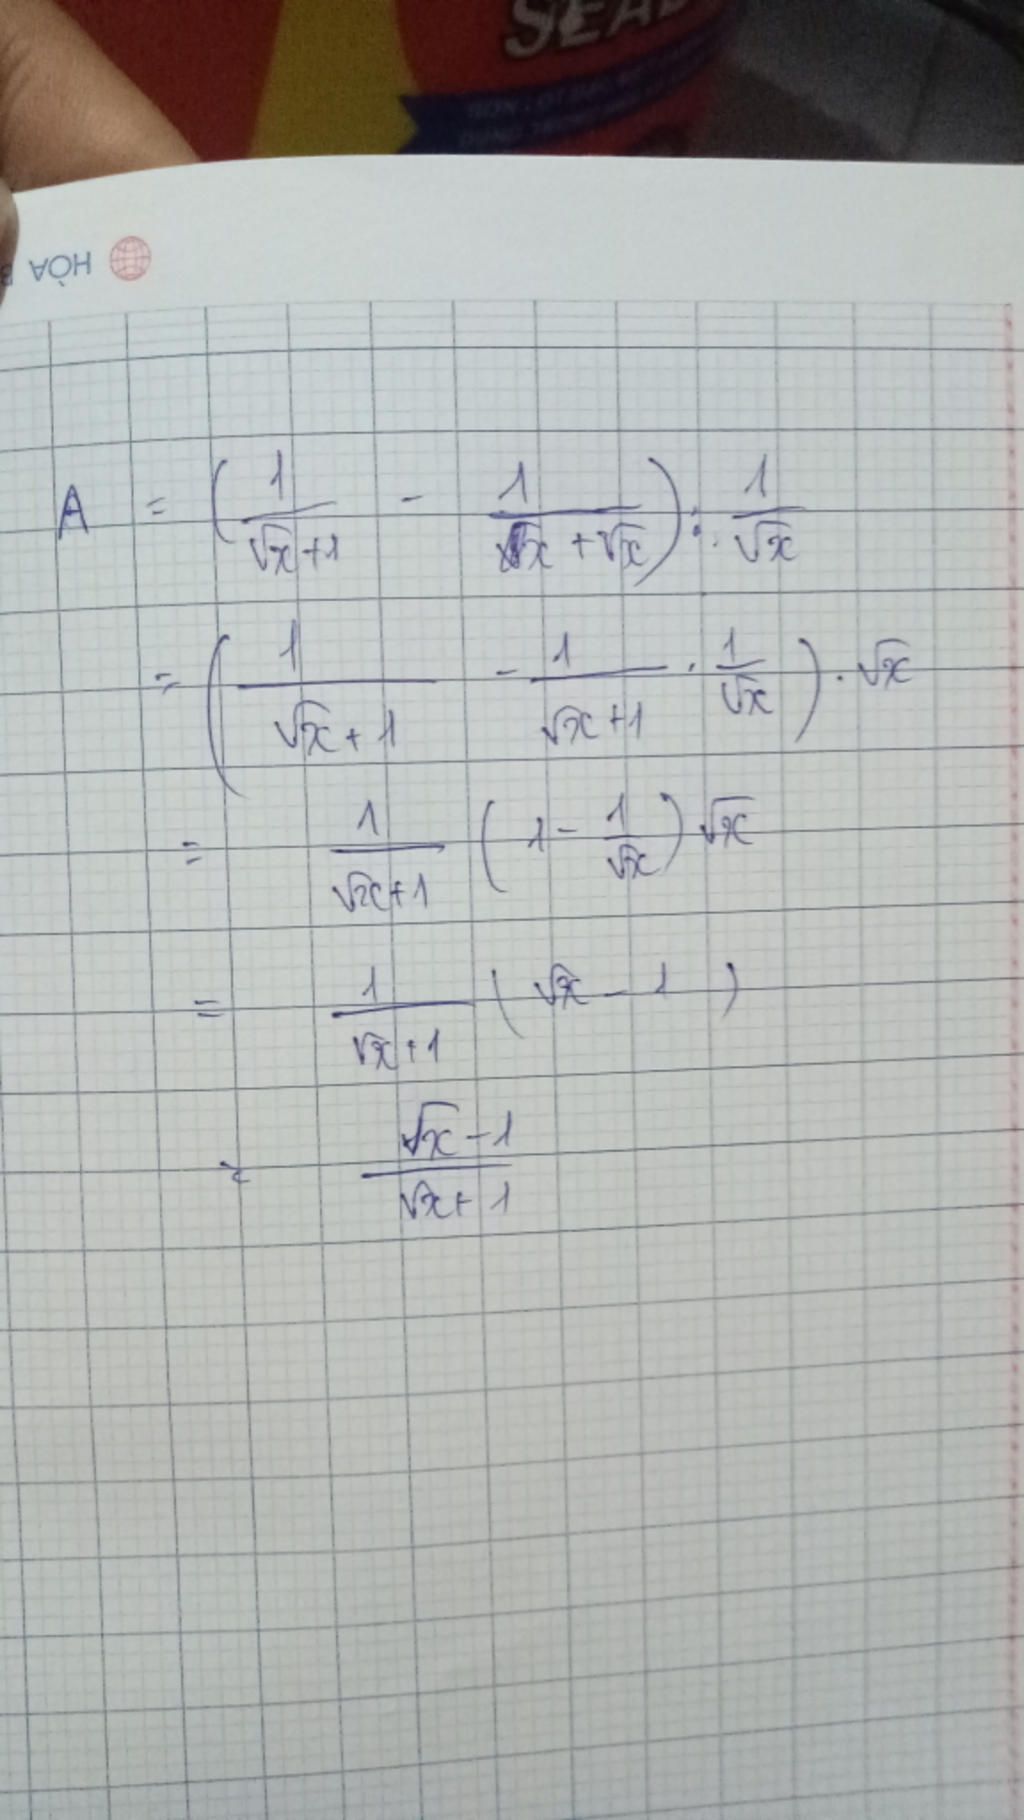 SEA
HÒA B
A = ( 1/(√x+1) - 1/(x+√x) ) : 1/√x
= ( 1/(√x+1) - 1/(√x+1) . 1/√x ) . √x
= 1/(√x+1) ( 1 - 1/√x ) √x
= 1/(√x+1) ( √x - 1 )
= (√x-1)/(√x+1)